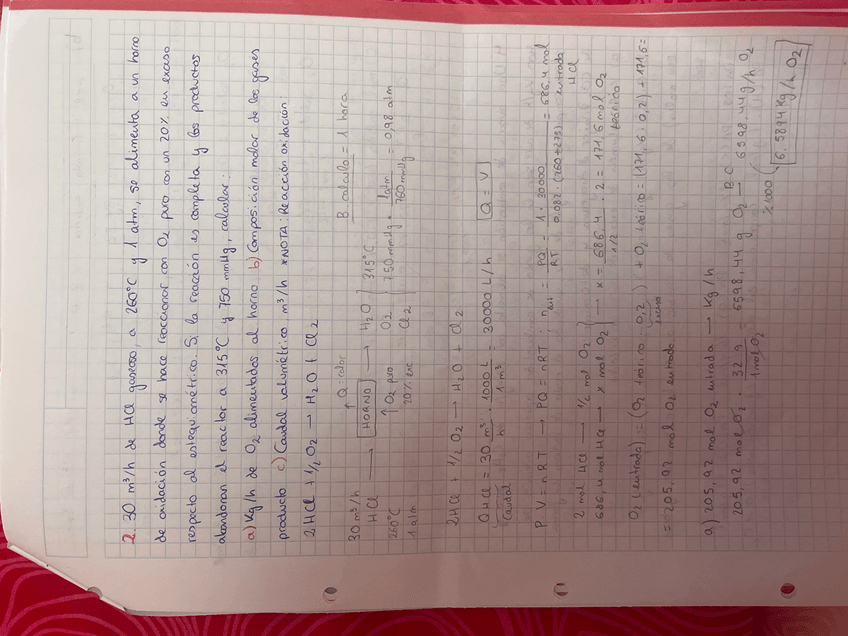 2. 30 m³/h de HCl gaseoso, a 260°C y 1 atm, se alimenta a un horno
de oxidación donde se hace reaccionar con O₂ puro con un 20% en exceso
respecto al estequiométrico. Si la reacción es completa y los productos
abandonan el reactor a 315°C y 750 mmHg, calcular:
a) Kg/h de O₂ alimentados al horno b) Composición molar de los gases
producto c) Caudal volumétrico m³/h *NOTA: Reacción oxidación:
2HCl + 1/2 O₂ → H₂O + Cl₂
B. calculo = 1 hora
↑ Q: calor
30 m³/h → HORNO → H₂O 315°C
HCl ↑ O₂ puro O₂ 750 mmHg · 1 atm / 760 mmHg = 0,98 atm
260°C 20% exc Cl₂
1 atm
2HCl + 1/2 O₂ → H₂O + Cl₂
QHCl = 30 m³/h · 1000 L / 1 m³ = 30000 L/h Q = V
Caudal
P·V = nRT → PQ = nRT ; = PQ/RT = 1 · 30000 / 0.082 · (260+273) = 686,4 mol
entrada
HCl
2 mol HCl → 1/2 mol O₂
686,4 mol HCl → x mol O₂ → x = 686,4 · 2 / 1/2 = 171,6 mol O₂
teórico
O₂ (entrada) = (O₂ teórico · 0,2) + O₂ teórico = (171,6 · 0,2) + 171,6 =
exceso
= 205,92 mol O₂ entrada
a) 205,92 mol O₂ entrada → Kg/h
205,92 mol O₂ · 32 g / 1 mol O₂ = 6598,44 g O₂ → B.C 6598,44 g/h O₂
x1000
6.5894 Kg/h O₂